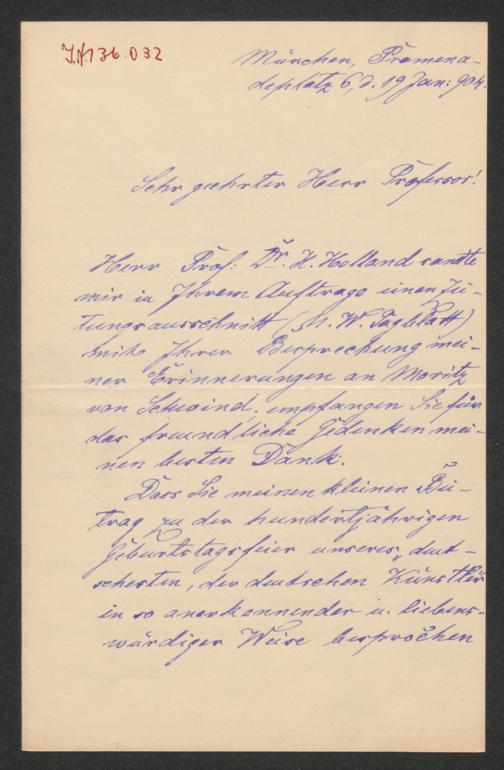 J.N. 136.032
München, Promena-
deplatz 6, d. 19 Jan: 904.
Sehr geehrter Herr Professor!
Herr Prof: Dr. H. Holland sandte
mir in Ihrem Auftrage einen Zei-
tungsausschnitt (N. W. Tagblatt)
mit Ihrer Besprechung mei-
ner Erinnerungen an Moritz
von Schwind; empfangen Sie für
das freundliche Gedenken mei-
nen besten Dank.
Dass Sie meinen kleinen Bei-
trag zu der hundertjährigen
Geburtstagsfeier unseres „deut-
schesten, der deutschen Künstler
in so anerkennender u. liebens-
würdiger Weise besprochen